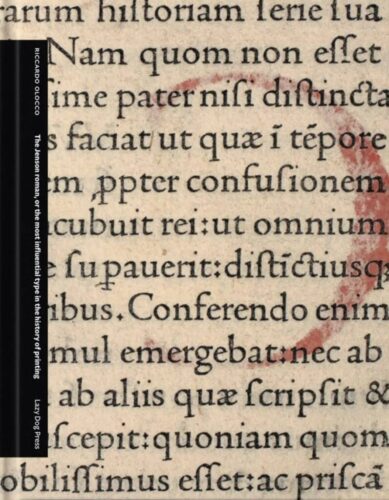 RICCARDO OLOCCO
The Jenson roman, or the most influential type in the history of printing
Lazy Dog Press
rarum hiſtoriam ſerie ſua
Nam quom non eſſet
ſime pater niſi diſtincta
s faciat ut quæ ī tēpore
em ꝓpter confuſionem
cubuit rei:ut omnium
e ſuꝑauerit:diſtīctiusq;
ribus. Conferendo enim
mul emergebat:nec ab
ab aliis quæ ſcripſit &
ſcepit:quoniam quom
obiliſſimus eſſet:ac priſcā